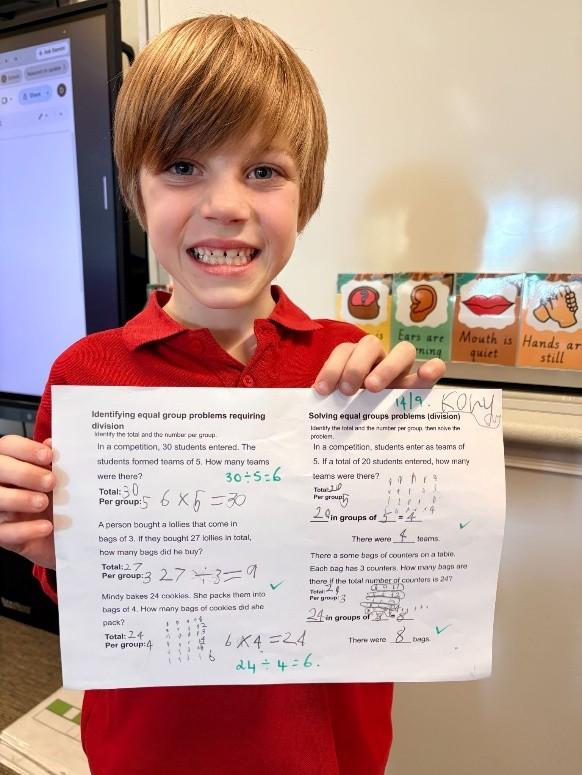 Ask Gemini
Share
Ears are
Mouth is
quiet
Hands ar
still
14/9.
Kory
Identifying equal group problems requiring
division
Identify the total and the number per group.
In a competition, 30 students entered. The
students formed teams of 5. How many teams
were there? 30÷5=6
Total: 30
Per group: 5 6 X 5 = 30
A person bought a lollies that come in
bags of 3. If they bought 27 lollies in total,
how many bags did he buy?
Total: 27
Per group: 3 27 ÷ 3 = 9
Mindy bakes 24 cookies. She packs them into
bags of 4. How many bags of cookies did she
pack?
Total: 24
Per group: 4 6 6 X 4 = 24
24 ÷ 4 = 6.
Solving equal groups problems (division)
Identify the total and the number per group, then solve the
problem.
In a competition, students enter as teams of
5. If a total of 20 students entered, how many
teams were there?
Total: 20
Per group: 5
20 in groups of 5 = 4
There were 4 teams.
There a some bags of counters on a table.
Each bag has 3 counters. How many bags are
there if the total number of counters is 24?
Total: 24
Per group: 3
24 in groups of = 8
There were 8 bags.